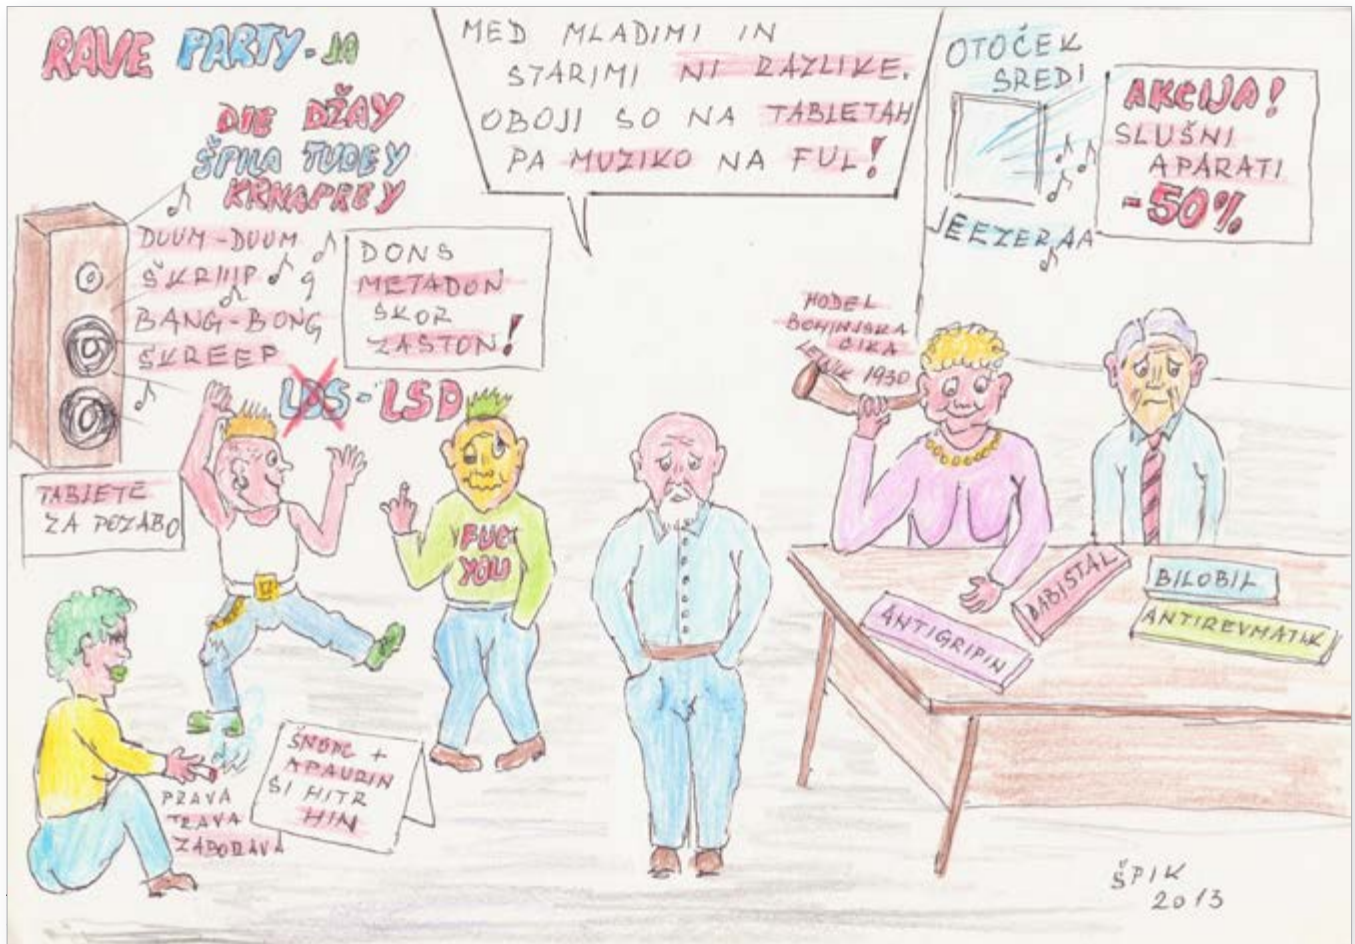 RAVE PARTY - JA
DIE DŽAY
ŠPILA TUDEY
KRNAPREY
DUUM-DUUM
ŠKRIIIP
BANG-BONG
ŠKREEP
DONS
METADON
SKOR
ZASTON!
LDS - LSD
TABLETE
ZA POZABO
FUC
YOU
PRAVA
TRAVA
ZABORAVA
ŠNOPC +
APAURIN
SI HITR
HIN
MED MLADIMI IN
STARIMI NI RAZLIKE.
OBOJI SO NA TABLETAH
PA MUZIKO NA FUL!
OTOČEK
SREDI
JEEZERAA
AKCIJA!
SLUŠNI
APARATI
-50%
MODEL
BOHINJSKA
CIKA
LETNIK 1930
ANTIGRIPIN
DABISTAL
BILOBIL
ANTIREVMATIK
ŠPIK
2013